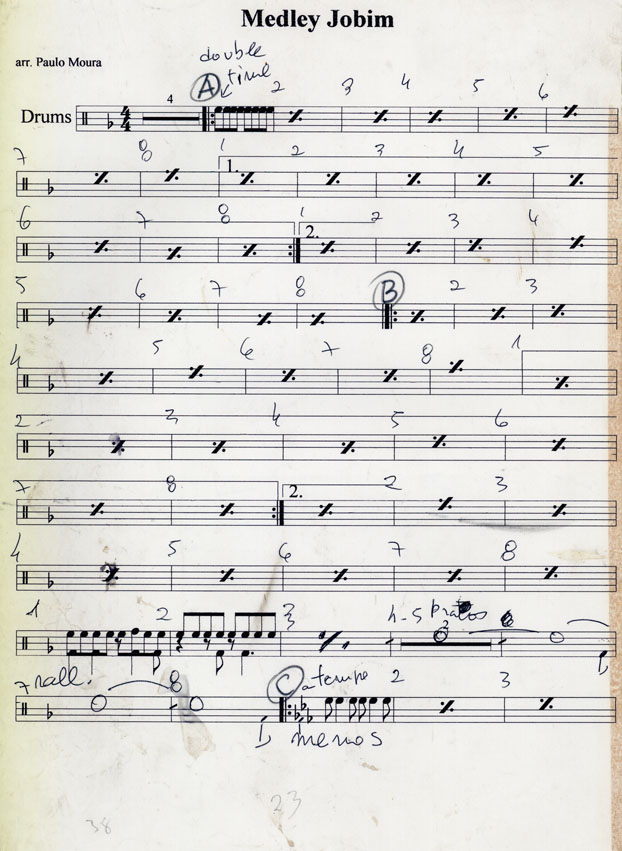 Medley Jobim
arr. Paulo Moura
double
time
A
4
2 3 4 5 6
Drums
4
4
7 8 1 2 3 4 5
1.
6 7 8 1 2 3 4
2.
5 6 7 8 B 2 3
4 5 6 7 8 1
2 3 4 5 6
7 8 2 3
2.
4 5 6 7 8
1 2 3 4-5 Pratos 6
2
7 rall. 8 C a tempo 2 3
menos
23
38